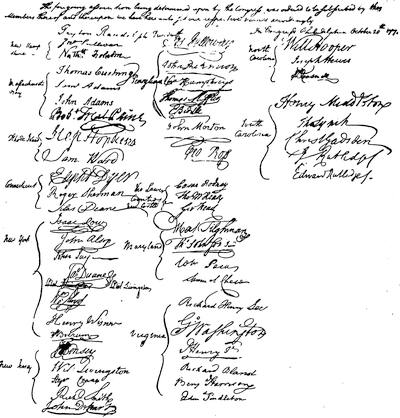 The foregoing association being determined upon by the Congress, was ordered to be subscribed by the
Members thereof; and thereupon we have hereunto set our respective names accordingly.
In Congress Philadelphia October 20th 1774.
Peyton Randolph President
New Hampshire
Jno Sullivan
Nathl Folsom
Massachusetts Bay
Thomas Cushing
Saml Adams
John Adams
Robt Treat Paine
Rhode Island
Step Hopkins
Sam: Ward
Connecticut
Elipht Dyer
Roger Sherman
Silas Deane
New York
Isaac Low
John Alsop
John Jay
Jas Duane
Wm Floyd
Henry Wisner
New Jersey
Wil: Livingston
Step Crane
Richd Smith
John De Hart
Pennsylvania
Jos Galloway
John Dickinson
Cha Humphreys
Thomas Mifflin
John Morton
Geo Ross
The Lower Counties New Castle
Caesar Rodney
Tho M Kean
Geo Read
Maryland
Mat Tilghman
Wm Paca
Samuel Chase
Virginia
Richard Henry Lee
Go Washington
P. Henry Jr
Richard Bland
Benj Harrison
Edm Pendleton
North Carolina
Will Hooper
Joseph Hewes
R Caswell
South Carolina
Henry Middleton
Tho Lynch
Christ Gadsden
J Rutledge
Edward Rutledge